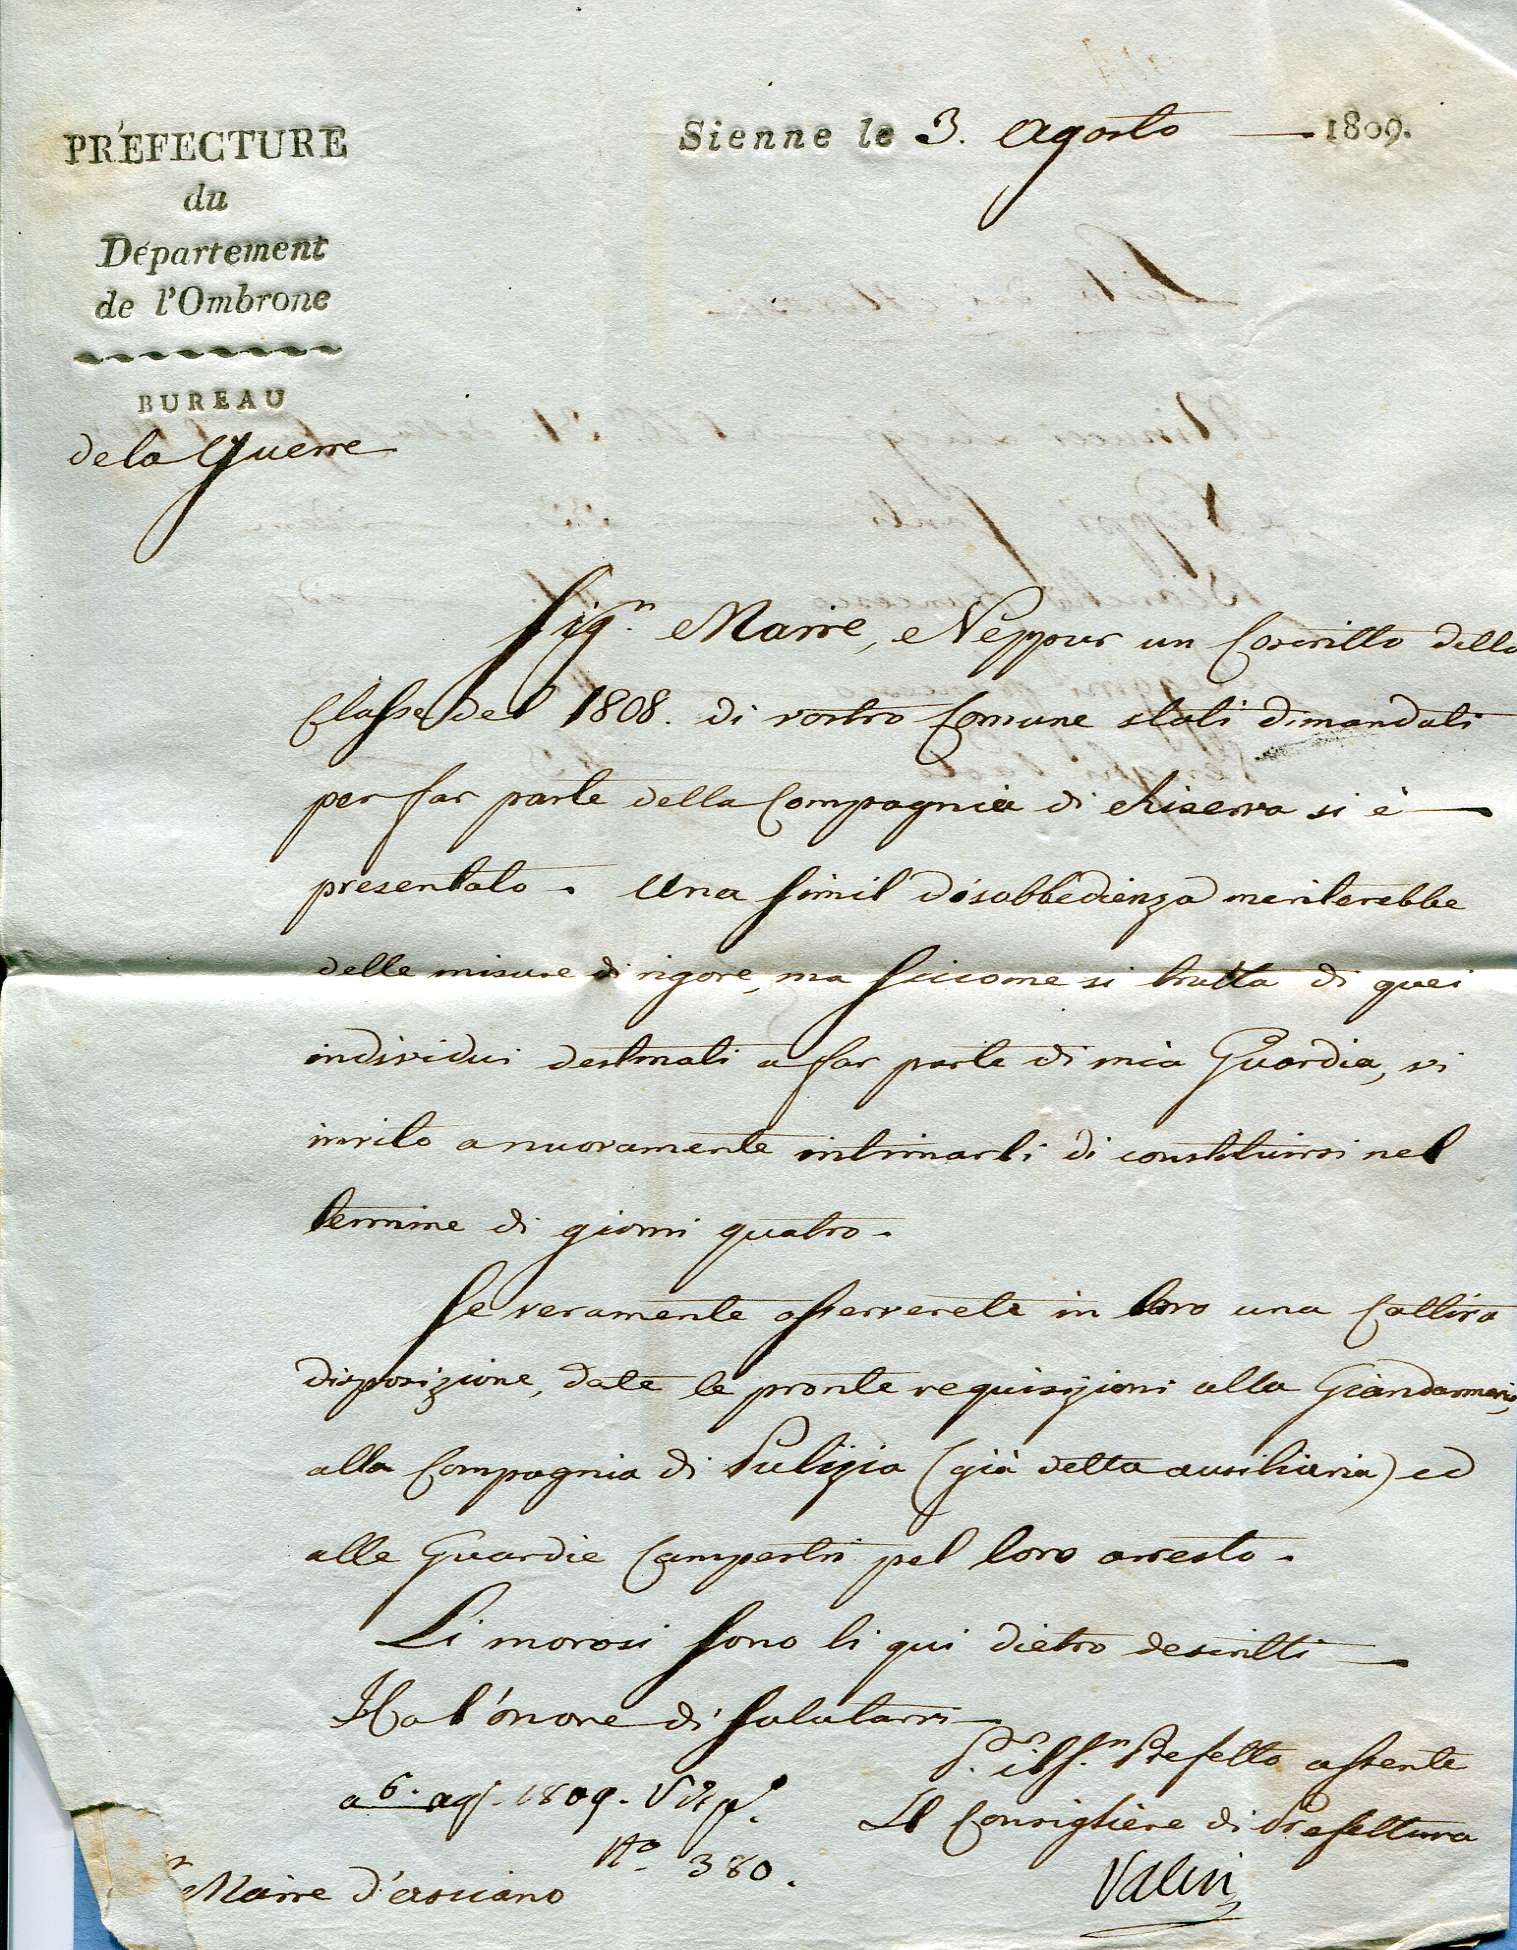 PRÉFECTURE
du
Département
de l'Ombrone
BUREAU
de la Guerre
Sienne le 3. Agosto 1809.
Sig.r Maire, Neppur un Coscritto della
Classe del 1808. di vostro Comune stati dimandati
per far parte della Compagnia di Riserva si è
presentato. Una simil disobbedienza meriterebbe
delle misure di rigore, ma siccome si tratta di quei
individui destinati a far parte di mia Guardia, vi
invito a nuovamente intimarli di constituirsi nel
termine di giorni quatro.
Se veramente osserverete in loro una Cattiva
disposizione, date le pronte requisizioni alla Giandarmeria,
alla Compagnia di Pulizia (già detta ausiliaria) ed
alle Guardie Campestri pel loro arresto.
Li morosi sono li qui dietro descritti
Ho l'onore di salutarvi
P. il S.r Prefetto assente
Il Consigliere di Prefettura
a 6. ag. 1809.
N.o 380.
Maire d'Asciano